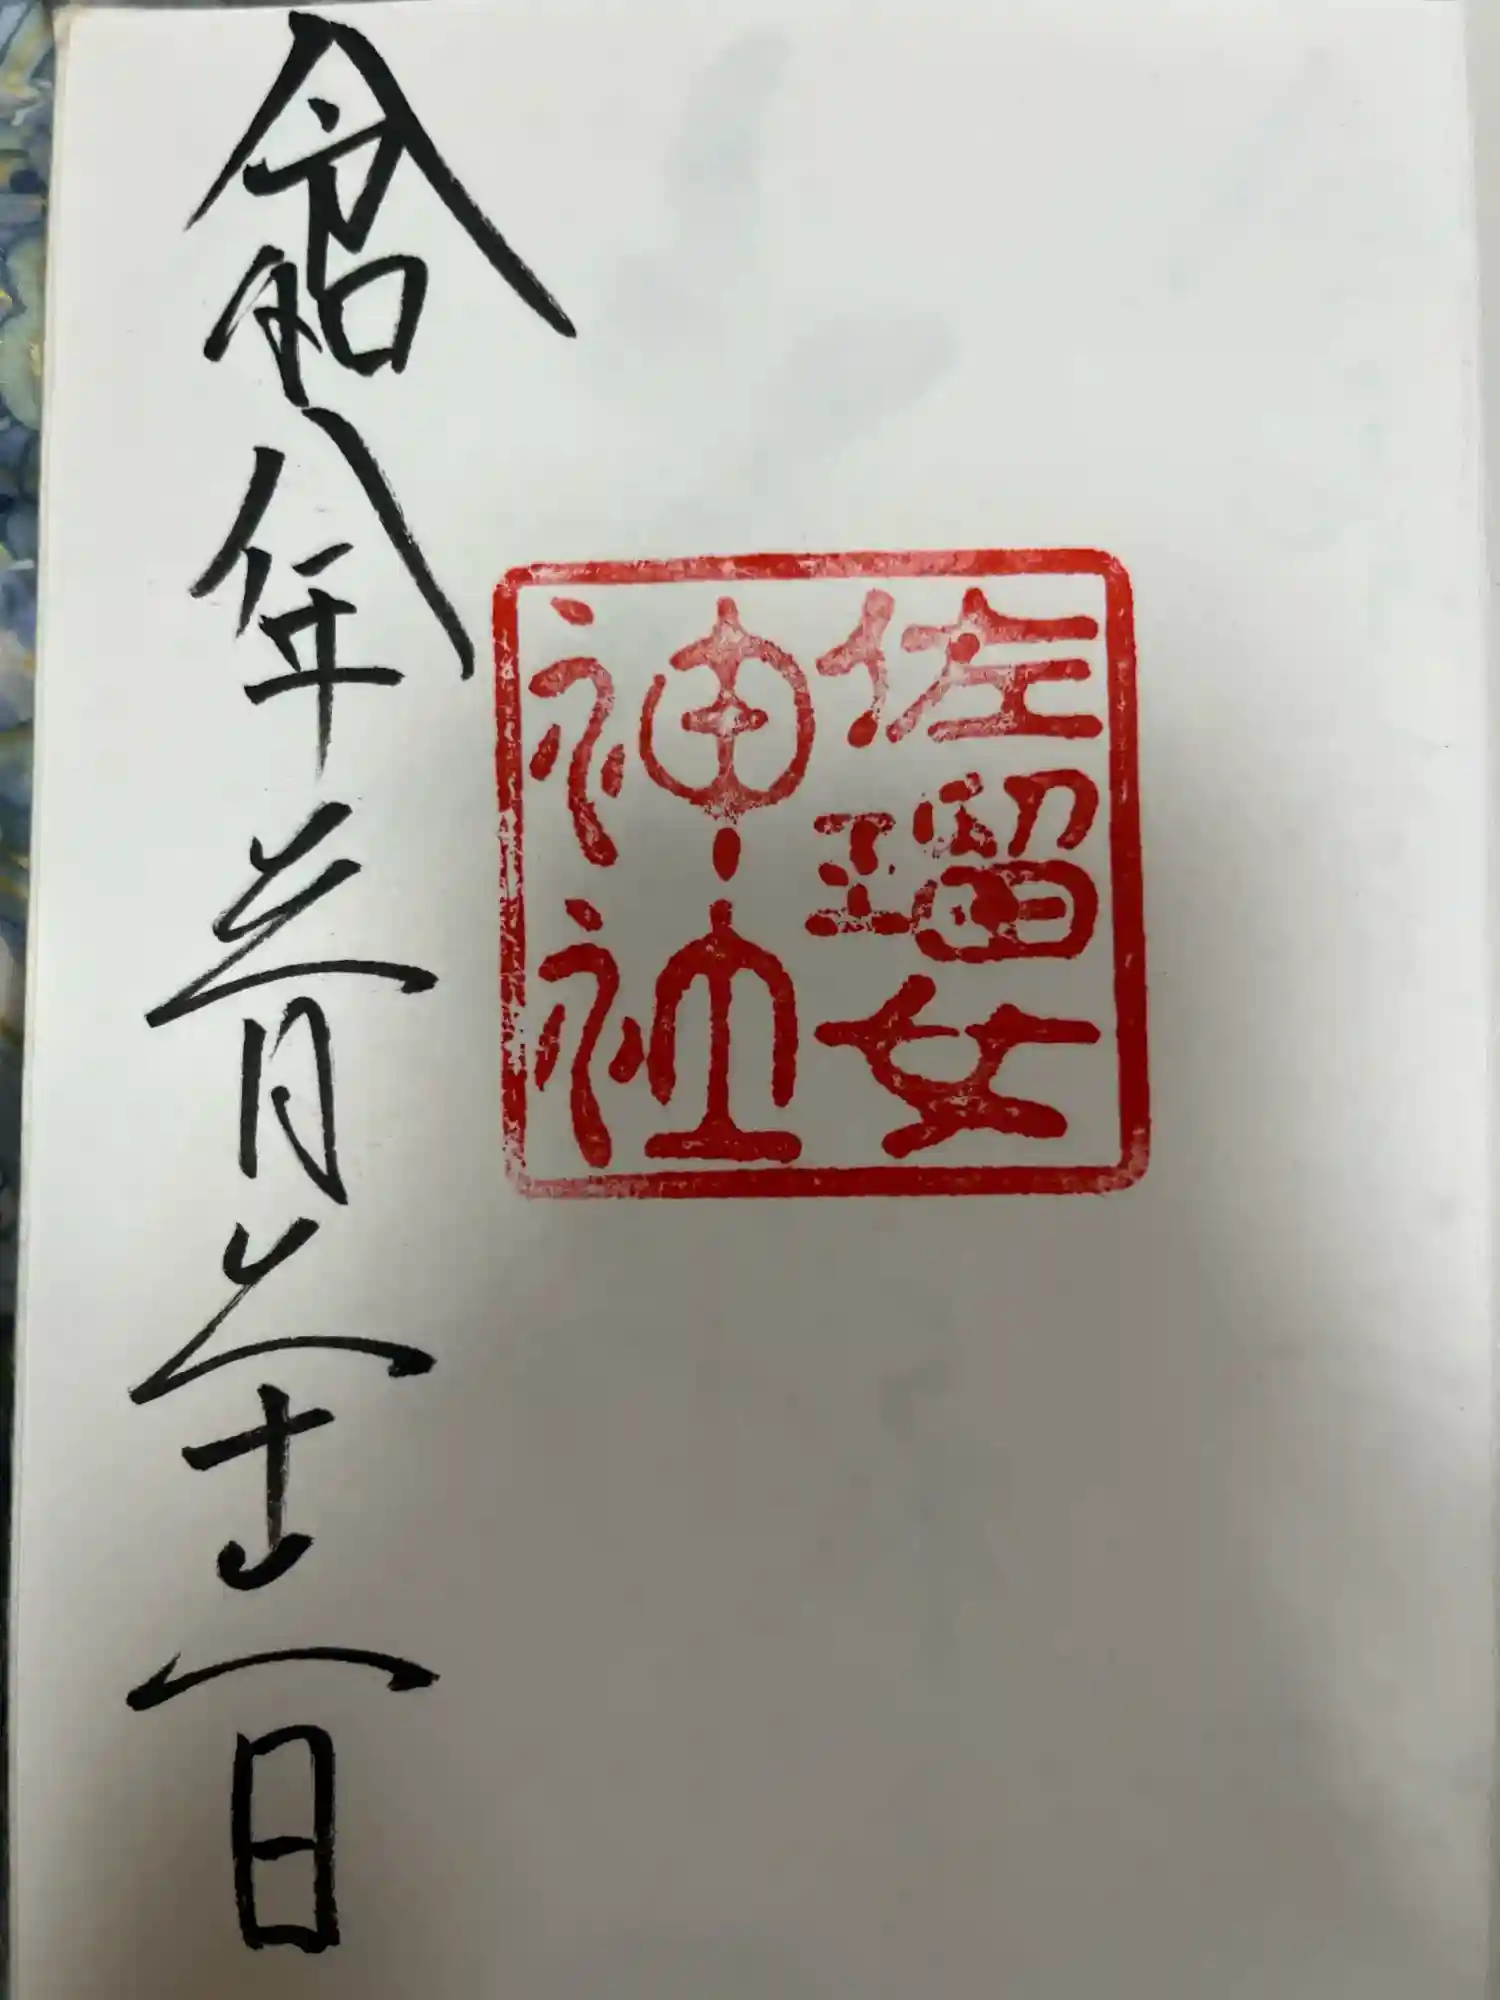 佐瑠女
神社
令和八年三月三十一日